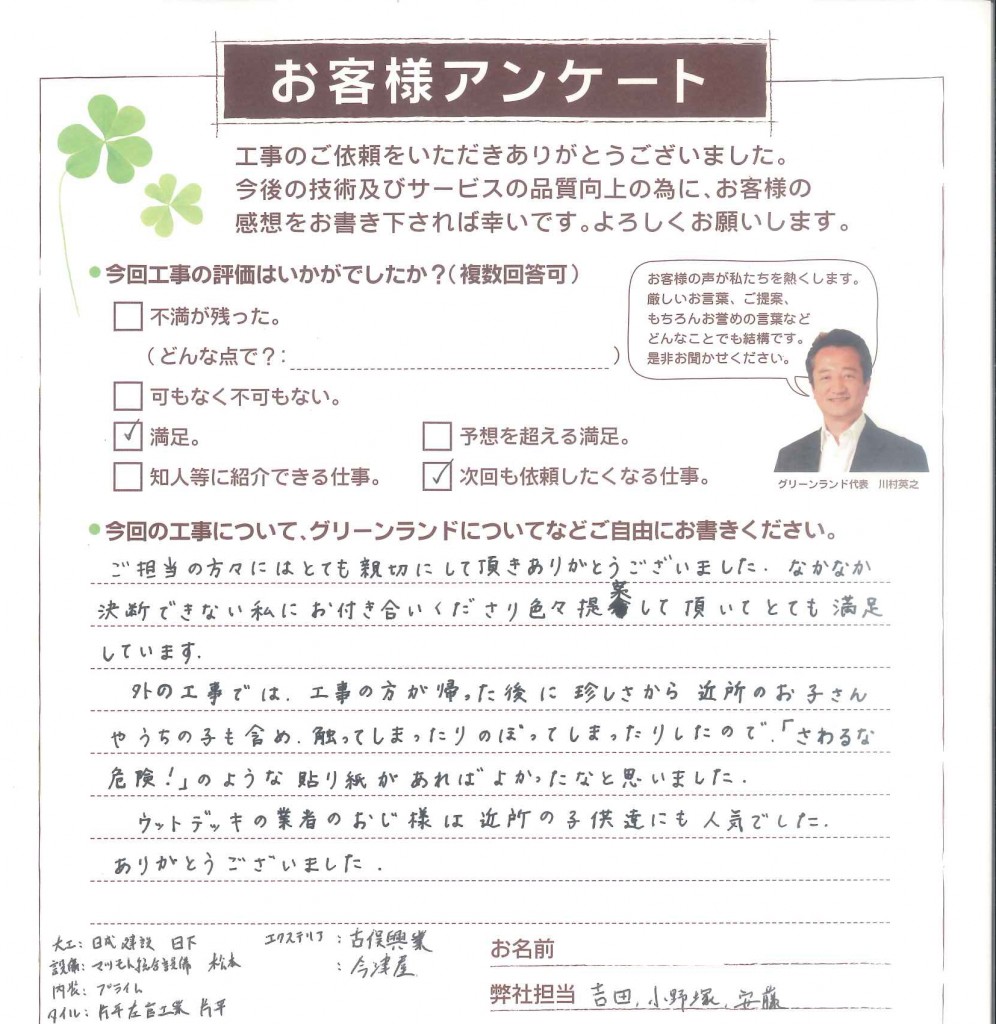 お客様アンケート
工事のご依頼をいただきありがとうございました。
今後の技術及びサービスの品質向上の為に、お客様の
感想をお書き下されば幸いです。よろしくお願いします。
今回工事の評価はいかがでしたか？(複数回答可)
不満が残った。
(どんな点で？: )
可もなく不可もない。
満足。
予想を超える満足。
知人等に紹介できる仕事。
次回も依頼したくなる仕事。
お客様の声が私たちを熱くします。
厳しいお言葉、ご提案、
もちろんお誉めの言葉など
どんなことでも結構です。
是非お聞かせください。
グリーンランド代表 川村英之
今回の工事について、グリーンランドについてなどご自由にお書きください。
ご担当の方々にはとても親切にして頂きありがとうございました. なかなか
決断できない私にお付き合いくださり色々提案して頂いてとても満足
しています.
外の工事では. 工事の方が帰った後に珍しさから近所のお子さん
やうちの子も含め. 触ってしまったりのぼってしまったりしたので.「さわるな
危険!」のような貼り紙があればよかったなと思いました.
ウットデッキの業者のおじ様は近所の子供達にも人気でした.
ありがとうございました.
大工: 日成建設 日下
設備: マツモト総合設備 松本
内装: プライム
タイル: 片平左官工業 片平
エクステリア : 古俣興業
: 今津屋
お名前
弊社担当 吉田, 小野塚, 安藤